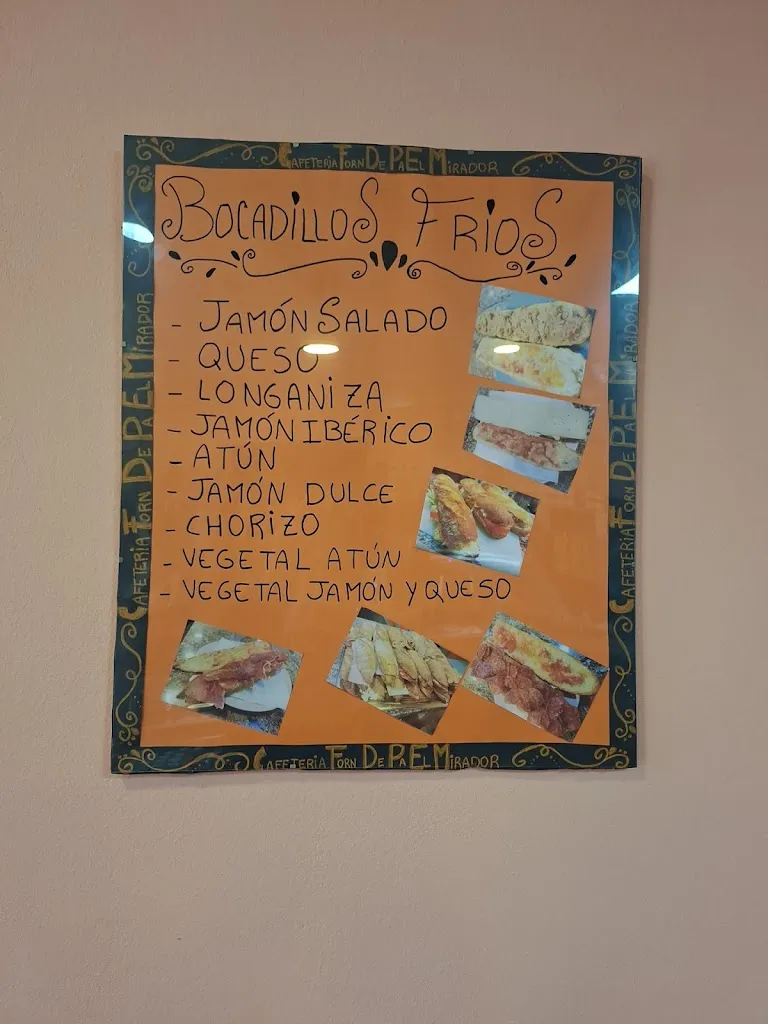 CAFETERIA FORN DE PA EL MIRADOR
BOCADILLOS FRIOS
- JAMÓN SALADO
- QUESO
- LONGANIZA
- JAMÓN IBÉRICO
- ATÚN
- JAMÓN DULCE
- CHORIZO
- VEGETAL ATÚN
- VEGETAL JAMÓN Y QUESO
CAFETERIA FORN DE PA EL MIRADOR
CAFETERIA FORN DE PA EL MIRADOR
CAFETERIA FORN DE PA EL MIRADOR